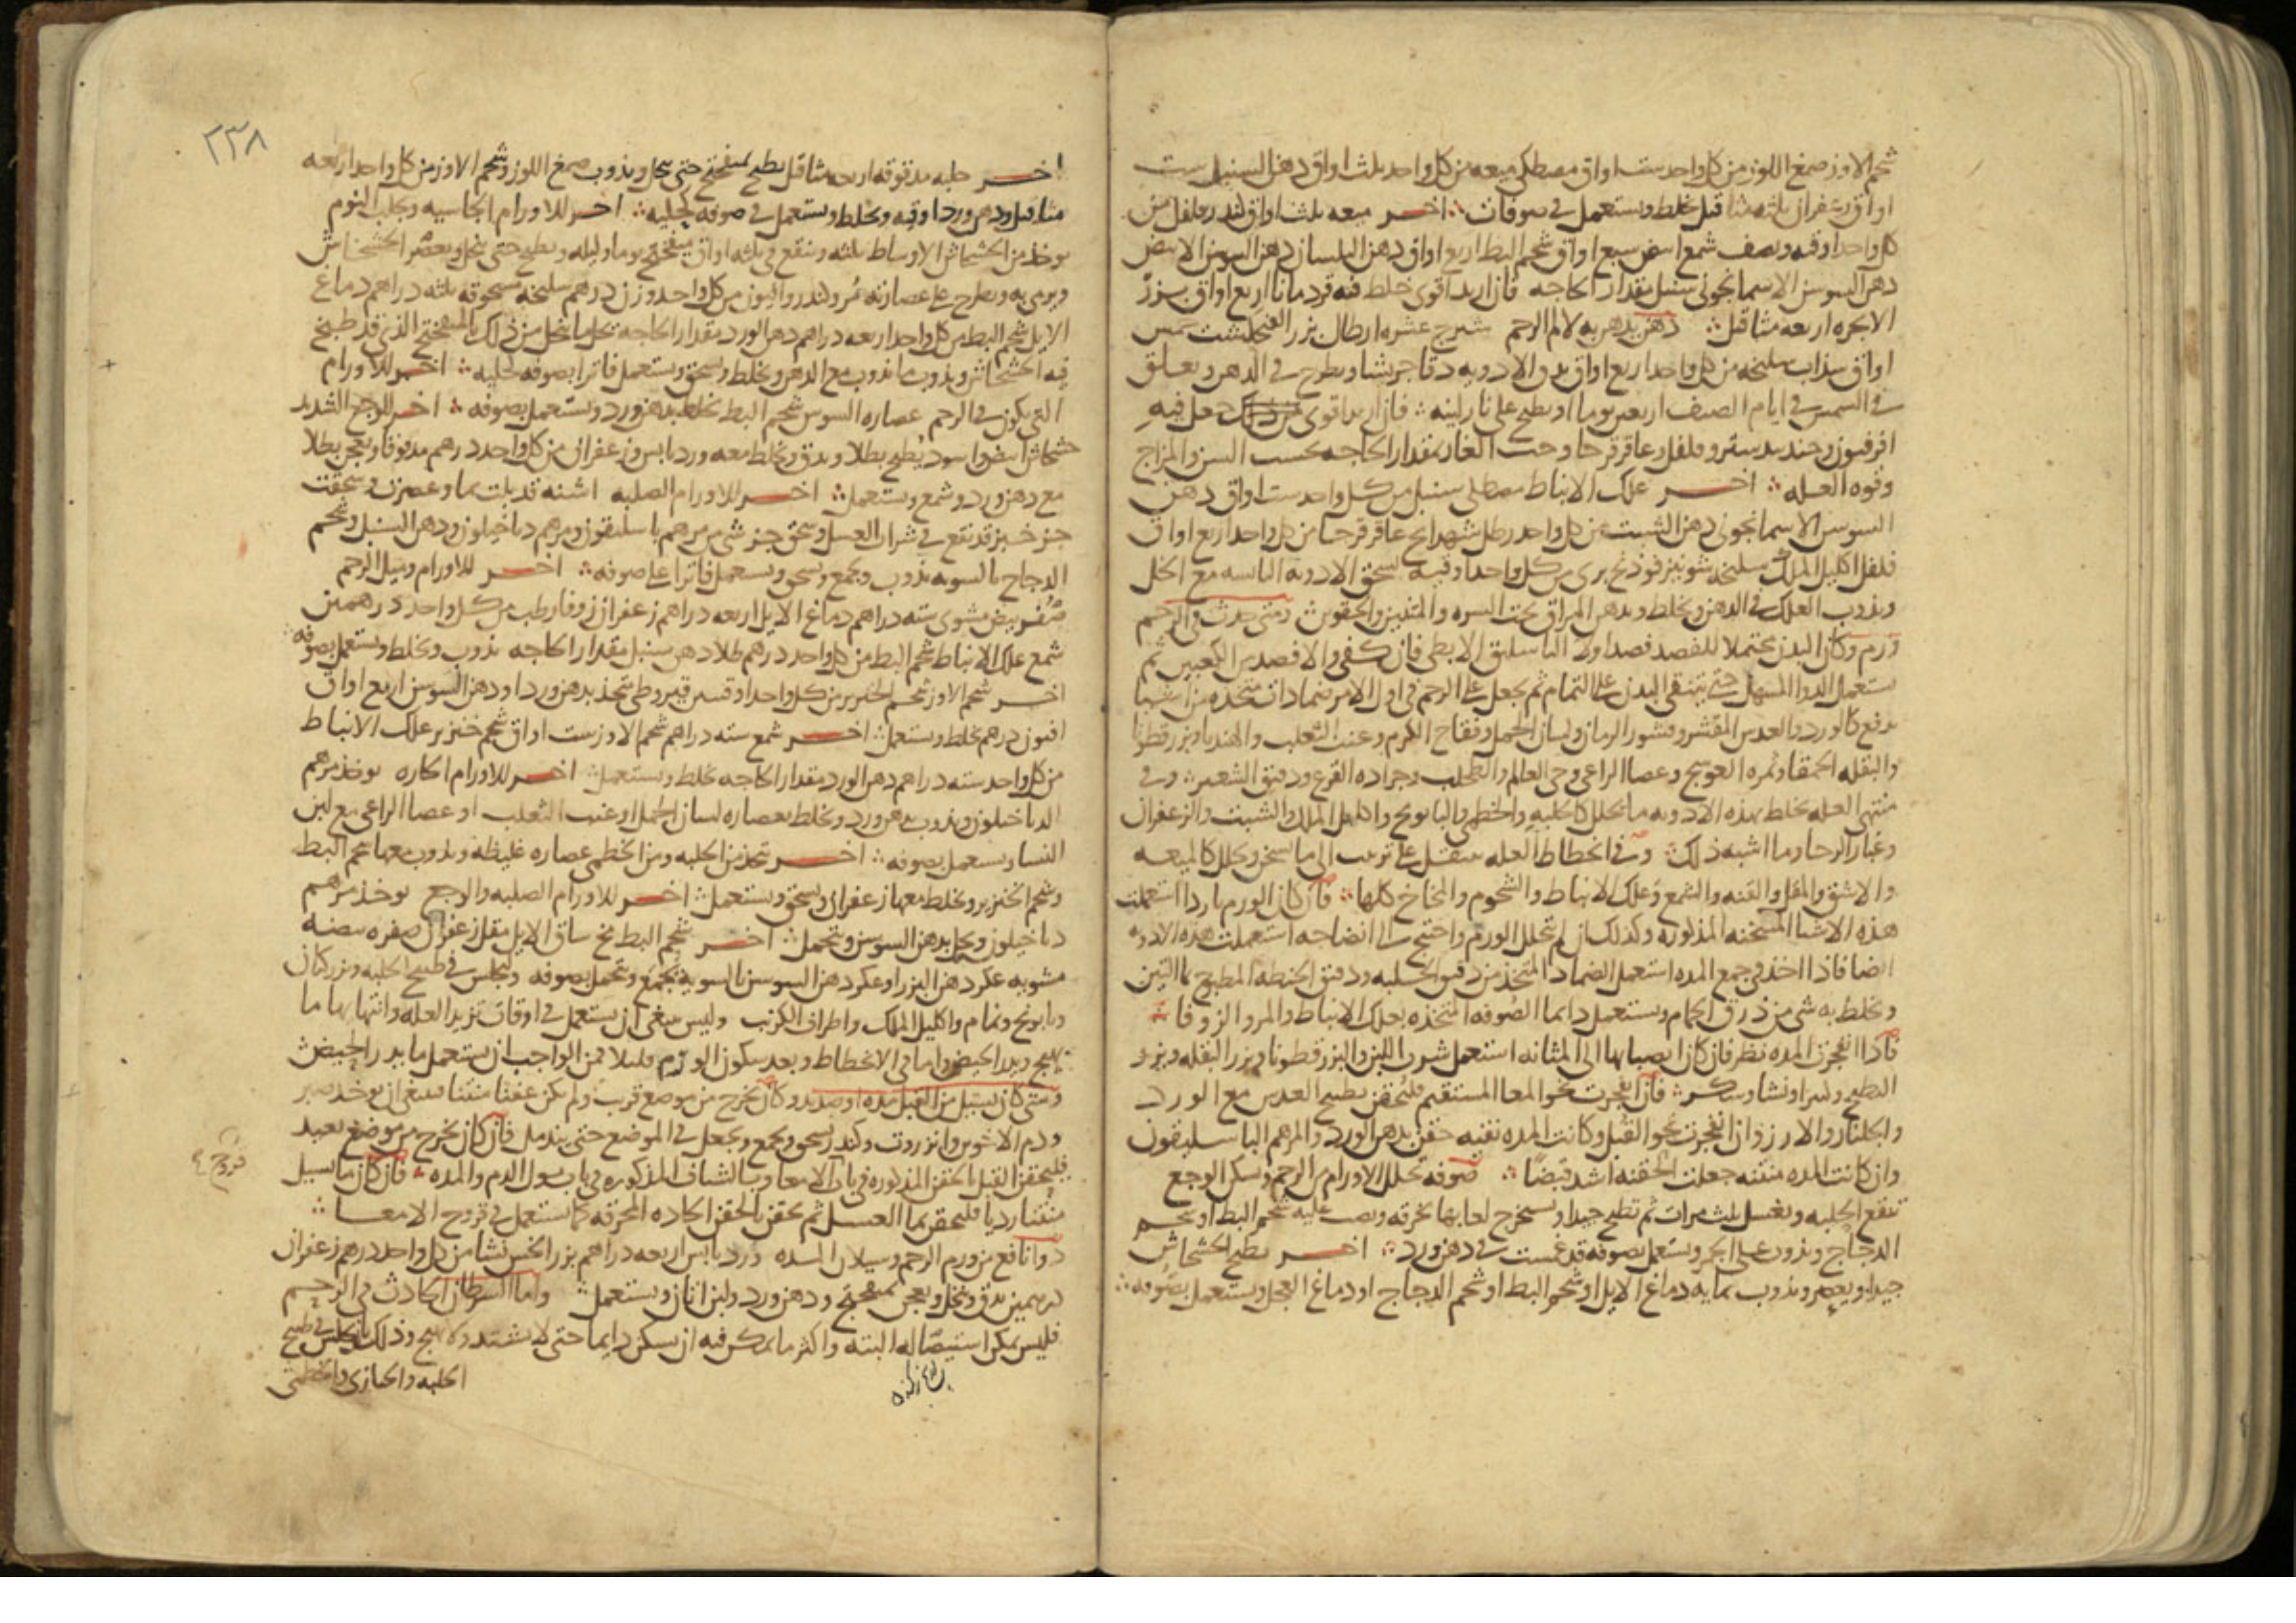 شحم الاوز صمغ اللوز من كل واحد ست اواق مصطكى ميعه من كل واحد ثلث اواق دهن السنبل ست
اواق زعفران ثلثه مثاقيل يخلط ويستعمل في صوفات اخر ميعه ثلث اواق كندر فلفل من
كل واحد اوقيه ونصف شمع ابيض سبع اواق شحم البط اربع اواق دهن البلسان دهن السوسن الابيض
دهن السوسن الاسمانجوني سنبل بمقدار الحاجه فان اريد اقوى خلط فيه قردمانا اربع اواق بزر
الانجره اربعه مثاقيل دهن يدهن به لالم الرحم شيرج عشره ارطال بزر الفنجنكشت خمس
اواق سذاب سليخه من كل واحد اربع اواق يدق الادويه دقا جريشا ويطرح في الدهن ويعلق
في الشمس في ايام الصيف اربعين يوما او يطبخ على نار لينه فان اريد اقوى من ذلك جعل فيه
افرفيون وجندبيدستر وفلفل وعاقرقرحا وحب الغار بمقدار الحاجه بحسب السن والمزاج
وقوه العله اخر علك الانباط مصطكى سنبل من كل واحد ست اواق دهن
السوسن الاسمانجوني دهن الشبت من كل واحد رطل شهدانج عاقرقرحا من كل واحد اربع اواق
فلفل اكليل الملك سليخه شونيز فوذنج بري من كل واحد اوقيه تسحق الادويه اليابسه مع الخل
ويذوب العلك في الدهن ويخلط ويدهن المراق تحت السره والمتنين والحقوين ومتى حدث في الرحم
ورم وكان البدن محتملا للفصد فصد اولا الباسليق الابطي فان كفى والا فصد من الكعبين ثم
يستعمل الدوا المسهل حتى يتنقى البدن على التمام ثم يجعل على الرحم في اول الامر ضمادات متخذه من اشيا
تدفع كالورد والعدس المقشر وقشور الرمان ولسان الحمل وفقاح الكرم وعنب الثعلب والهندبا وبزر قطونا
والبقله الحمقا وثمره العوسج وعصا الراعي وحي العالم والطحلب وجراده القرع ودقيق الشعير وفي
منتهى العله يخلط بهذه الادويه ما يحلل كالحلبه والخطمي والبابونج واكليل الملك والشبت والزعفران
وغبار الرحا وما اشبه ذلك وفي انحطاط العله ينتقل على ترتيب الى ما يسخن ويحلل كالميعه
والاشق والمقل والقنه والشمع وعلك الانباط والشحوم والمخاخ كلها فان كان الورم باردا استعملت
هذه الاشيا المسخنه المذكوره وكذلك ان لم يتحلل الورم واحتيج الى انضاجه استعملت هذه الادويه
ايضا فاذا اخذ في جمع المده استعمل الضماد المتخذ من دقيق الحلبه ودقيق الحنطه المطبوخ بالتين
ويخلط به شي من ذرق الحمام ويستعمل دايما الصوفه المتخذه بعلك الانباط والمر والزوفا
فاذا انفجرت المده نظر فان كان انصبابها الى المثانه استعمل شرب اللبن والبزر قطونا وبزر البقله وبزر
البطيخ وكثيرا ونشا وسكر فان انفجرت نحو المعا المستقيم فلتحقن بطبيخ العدس مع الورد
والجلنار والارز وان انفجرت نحو القبل وكانت المده نقيه حقن بدهن الورد والمرهم الباسليقون
وان كانت المده منتنه جعلت الحقنه اشد قبضا صوفه تحلل الاورام من الرحم وتسكن الوجع
تنقع الحلبه وتغسل ثلث مرات ثم تطبخ جيدا ويستخرج لعابها بخرقه ويصب عليه شحم البط او شحم
الدجاج ويذوب على الجمر ويستعمل بصوفه قد غمست في دهن ورد اخر يطبخ الخشخاش
جيدا ويعصر ويذوب بمايه دماغ الايل او شحم البط او شحم الدجاج او دماغ العجل ويستعمل بصوفه
٢٣٨
اخر حلبه مدقوقه اربعه مثاقيل يطبخ بميفختج حتى ينحل ويذوب صمغ اللوز وشحم الاوز من كل واحد اربعه
مثاقيل ودهن ورد اوقيه ويخلط ويستعمل في صوفه لحليه اخر للاورام الجاسيه ويجلب النوم
يوخذ من الخشخاش الاوساط ثلثه وينقع في ثلثه اواق ميفختج يوما وليله ويطبخ حتى ينحل ويعصر الخشخاش
ويرمى به ويطرح على عصارته مر وكندر وافيون من كل واحد وزن درهم سليخه مسحوقه ثلثه دراهم دماغ
الايل شحم البط من كل واحد اربعه دراهم دهن الورد مقدار الحاجه يحل ما ينحل من ذلك بالميفختج الذي قد طبخ
فيه الخشخاش ويذوب ما يذوب مع الدهن ويخلط ويسحق ويستعمل فاترا بصوفه لحليه اخر للاورام
التي يكون في الرحم عصاره السوس شحم البط يخلط بدهن ورد ويستعمل بصوفه اخر للوجع الشديد
خشخاش ابيض واسود يطبخ بطلا ويدق ويخلط معه ورد يابس وزعفران من كل واحد درهم مدقوقا ويعجن بطلا
مع دهن ورد وشمع ويستعمل اخر للاورام الصلبه اشنه قد بلت بما وعصرت وسحقت
جز خبز قد نقع في شراب العسل وسحق جز شي من مرهم باسليقون ومرهم دياخيلون ودهن السنبل وشحم
الدجاج بالسويه يذوب ويجمع ويسحق ويستعمل فاترا على صوفه اخر للاورام وميل الرحم
صفر بيض مشوي سته دراهم دماغ الايل اربعه دراهم زعفران زوفا رطب من كل واحد درهمين
شمع علك الانباط شحم البط من كل واحد درهم طلا دهن سنبل مقدار الحاجه يذوب ويخلط ويستعمل بصوفه
اخر شحم الاوز شحم الخنزير من كل واحد اوقيتين قيروطي متخذ بدهن ورد او دهن السوسن اربع اواق
افيون درهم يخلط ويستعمل اخر شمع سته دراهم شحم الاوز ست اواق شحم خنزير علك الانباط
من كل واحد سته دراهم دهن الورد مقدار الحاجه يخلط ويستعمل اخر للاورام الحاره يوخذ مرهم
الدياخيلون ويذوب بدهن ورد ويخلط بعصاره لسان الحمل او عنب الثعلب او عصا الراعي مع لبن
النسا ويستعمل بصوفه اخر تتخذ من الحلبه ومن الخطمي عصاره غليظه ويذوب معها شحم البط
وشحم الخنزير ويخلط معها زعفران ويسحق ويستعمل اخر للاورام الصلبه والوجع يوخذ مرهم
دياخيلون ويحل بدهن السوسن ويتحمل اخر شحم البط مخ ساق الايل مقل زعفران صفره بيضه
مشويه عكر دهن البزر او عكر دهن السوسن بالسويه يجمع ويتحمل بصوفه وتجلس في طبيخ الحلبه وبزر كتان
وبابونج ونمام واكليل الملك واطراف الكرنب وليس ينبغي ان يستعمل في اوقات تزيد العله وانتهايها ما
يهيج ويدر الحيض واما في الانحطاط وبعد سكون الورم قليلا فمن الواجب ان يستعمل ما يدر الحيض
ومتى كان يسيل من القبل مده او صديد وكان يخرج من موضع قريب ولم يكن عفنا منتنا فينبغي ان يوخذ صبر
ودم الاخوين وانزروت وكندر يسحق ويجمع ويجعل في الموضع حتى يندمل فان كان يخرج من موضع بعيد
فليحقن القبل بالحقن المذكوره في باب الامعا وبالشياف المذكوره في باب بول الدم والمده فان كان ما يسيل
قروح
منتنا رديا فليحقن بما العسل ثم يحقن بالحقن الحاده المحرقه كما يستعمل في قروح الامعا
دوا نافع من ورم الرحم وسيلان المده ورد يابس اربعه دراهم بزر الخس نشا من كل واحد درهم زعفران
درهمين يدق وينخل ويعجن بميفختج ودهن ورد ولبن اتان ويستعمل واما السرطان الحادث في الرحم
فليس يمكن استيصاله البته واكثر ما يمكن فيه ان يسكن دايما حتى لا يشتد ولا يهيج وذلك بالجلوس في طبيخ
الحلبه والخبازى والخطمي